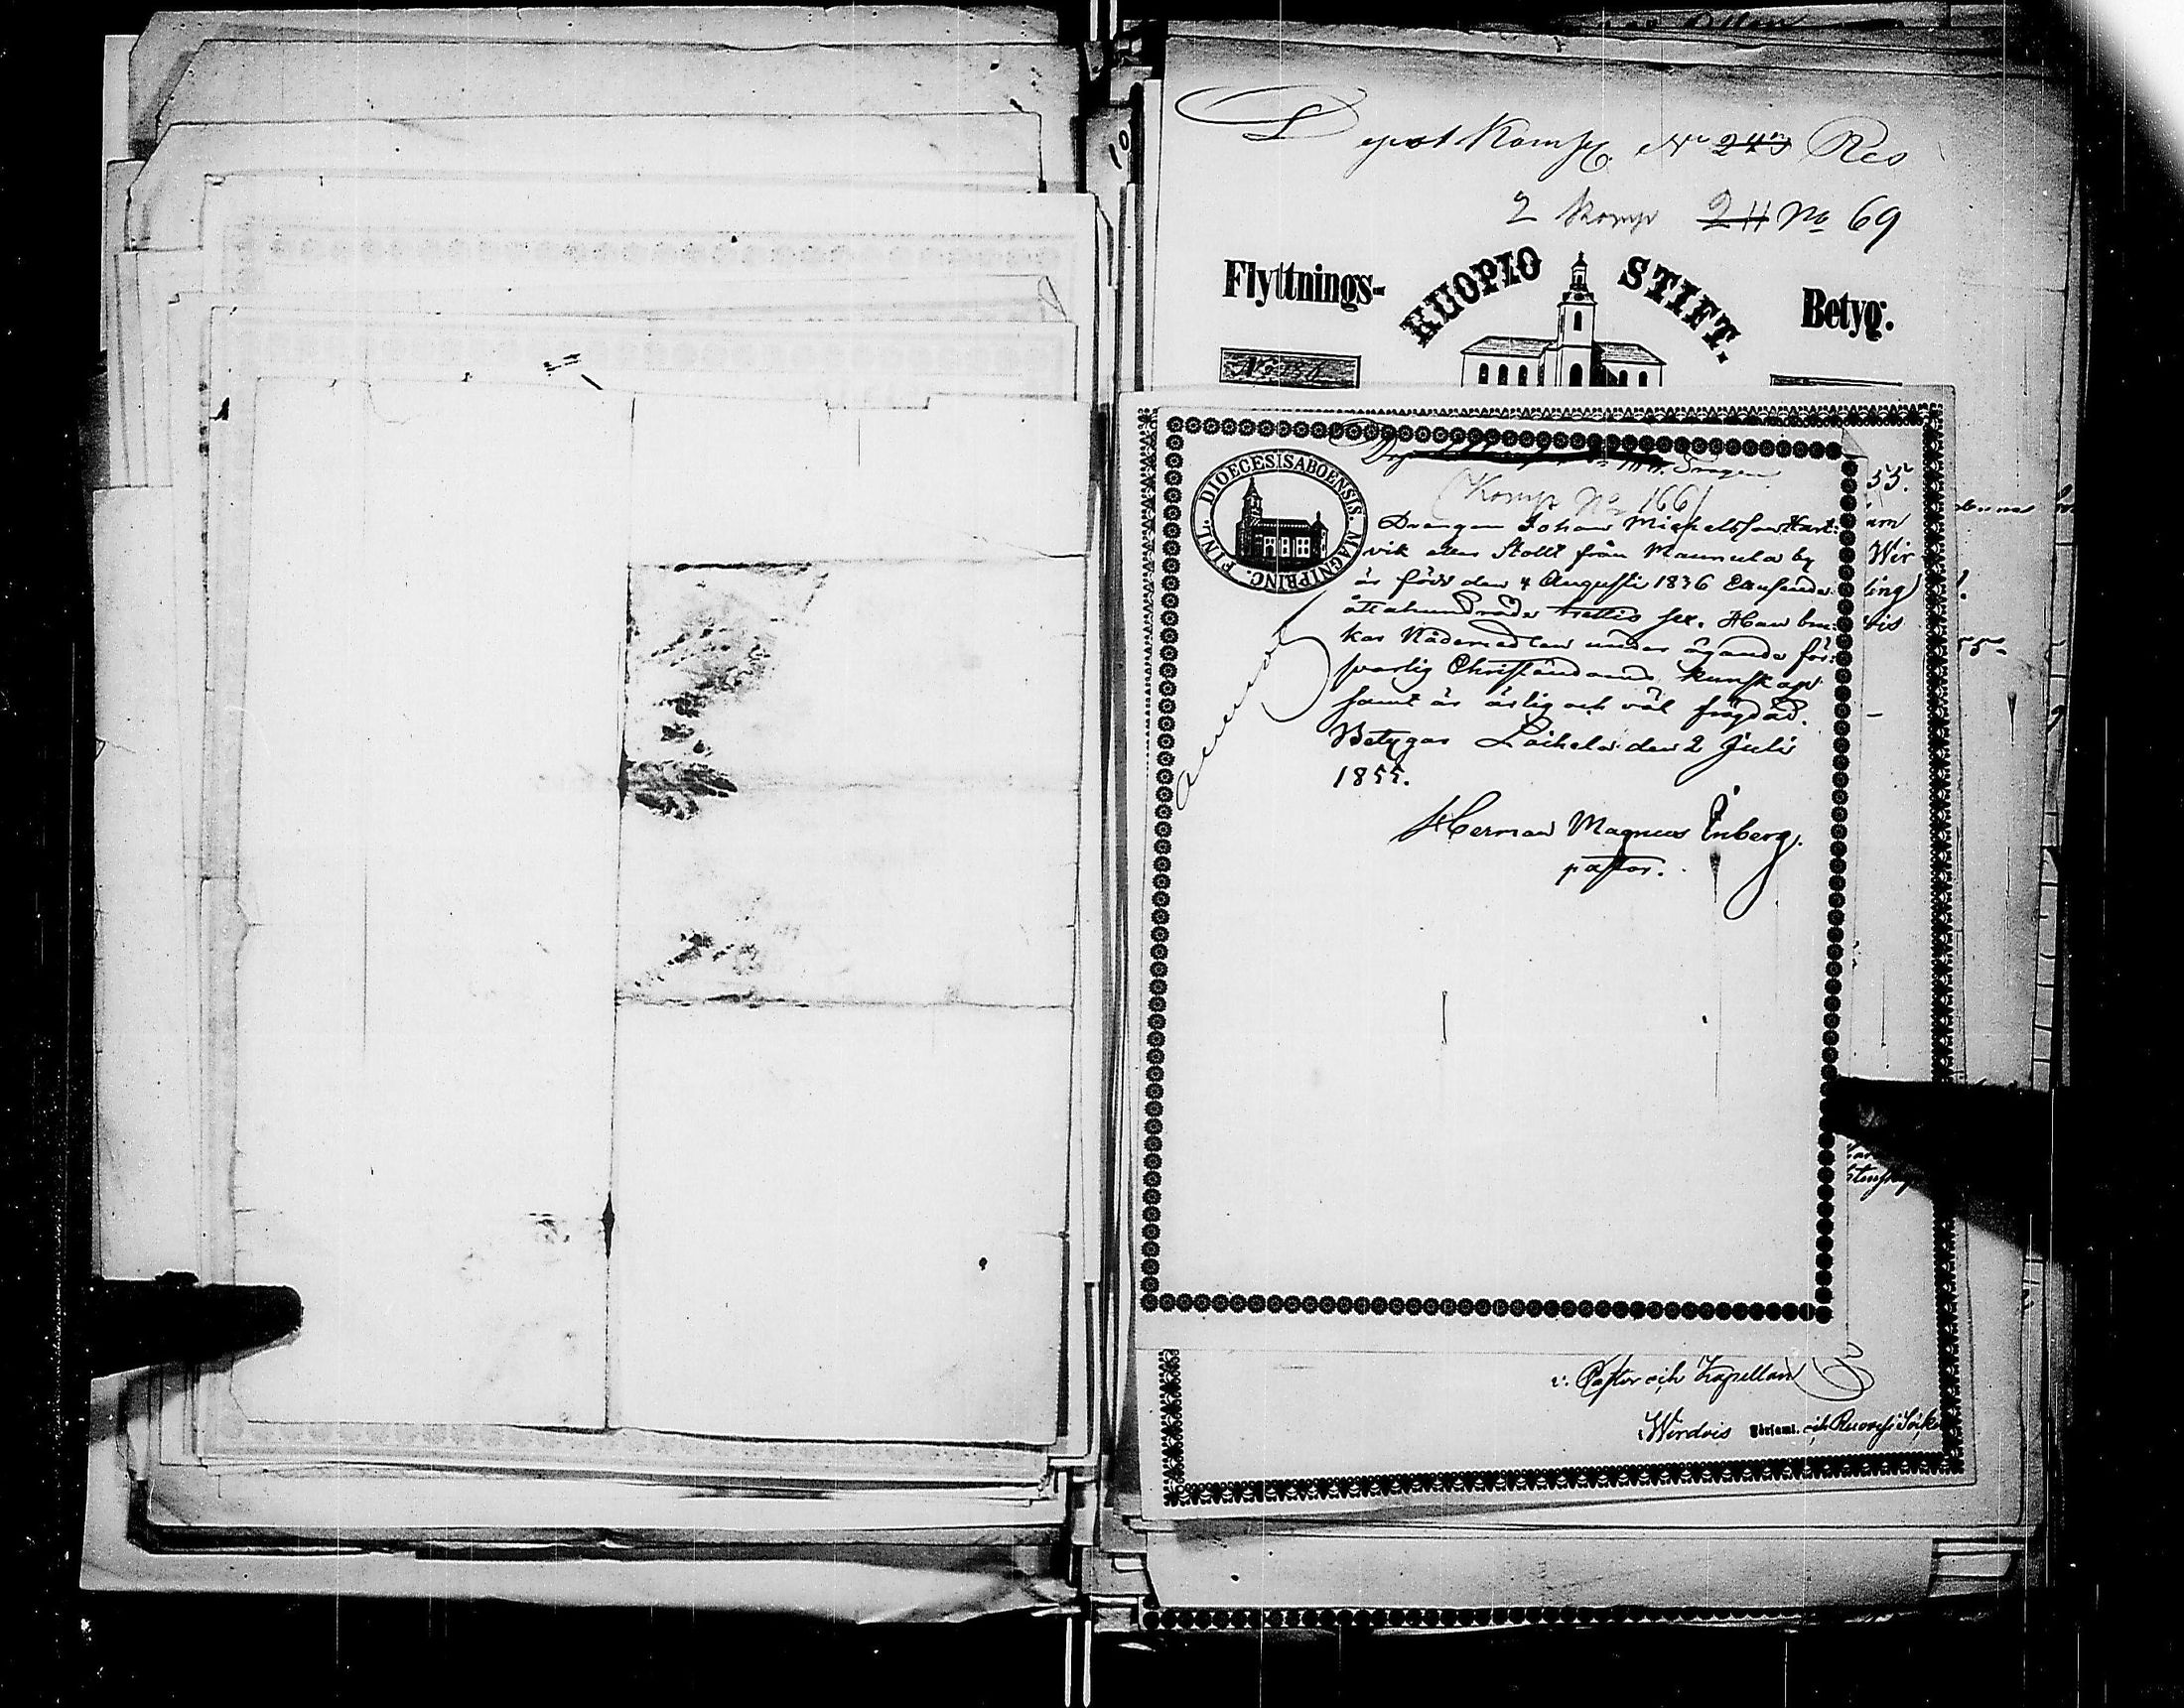 Depot Komp. No 243 Res
2 Komp 211 No 69
Flyttnings-
KUOPIO STIFT.
Betyg:
10
DIOECESIS ABOENSIS. MAGNI PRINC. FINL.
(Komp No 166)
Drengen Johan Michelsson Hart-
vik eller Stolt från Mannila by
är född den 4 Augusti 1836 Ettusende
åttahundrade trettio sex. Han bru-
kar Nådemedlen under ägande för-
svarlig Christendoms kunskap
samt är ärlig och väl frägdad.
Betygar Laihela den 2 Juli
1855.
Herman Magnus Enberg.
pastor.
55.
Wir
ling
v. Pastor och Kapellan
Wirdois Församl. och Ruovesi Sock